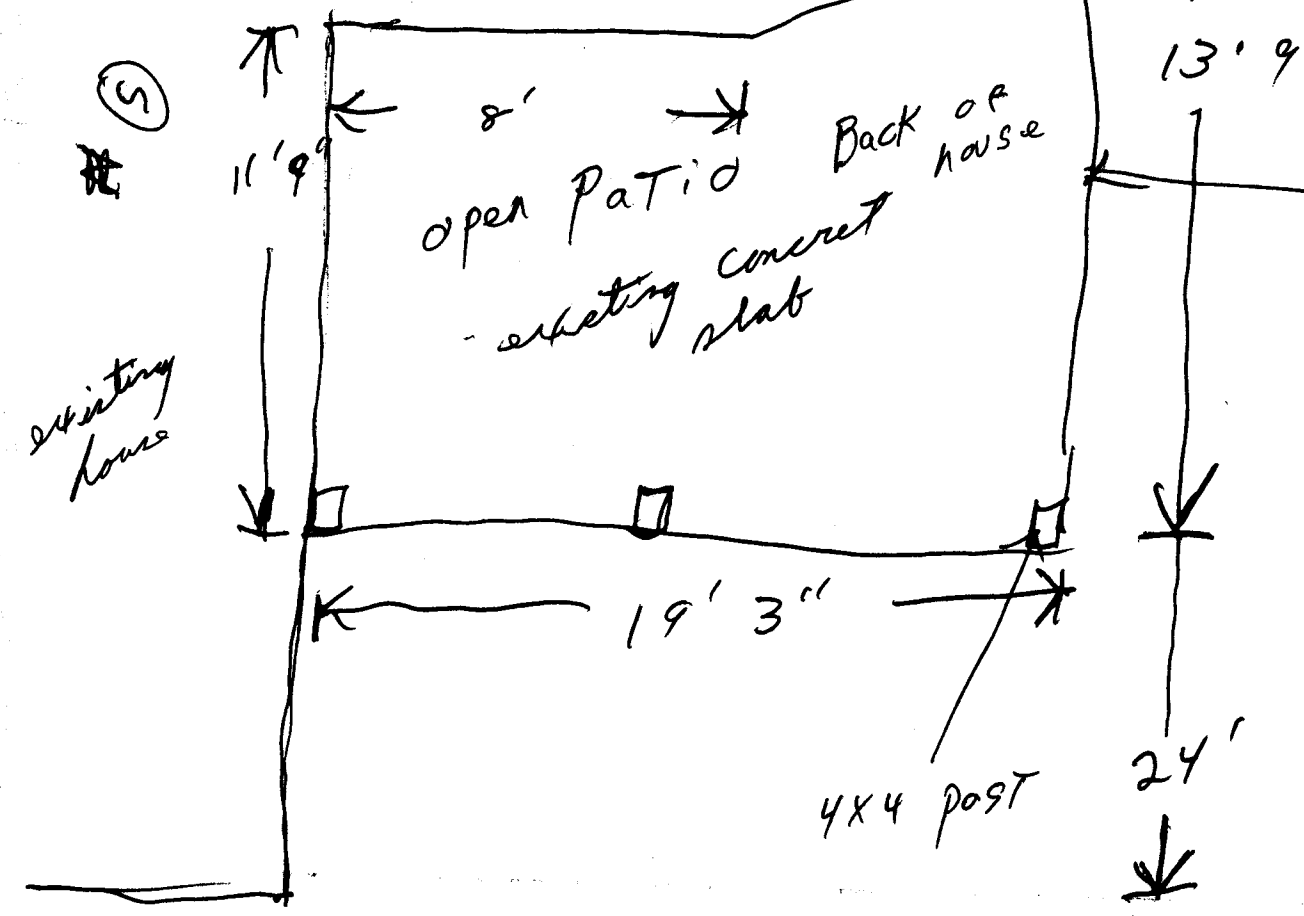 13' 9
5
8'
11' 9"
Back of
house
open PaTio
existing concret
slab
existing
house
19' 3"
24'
4x4 post